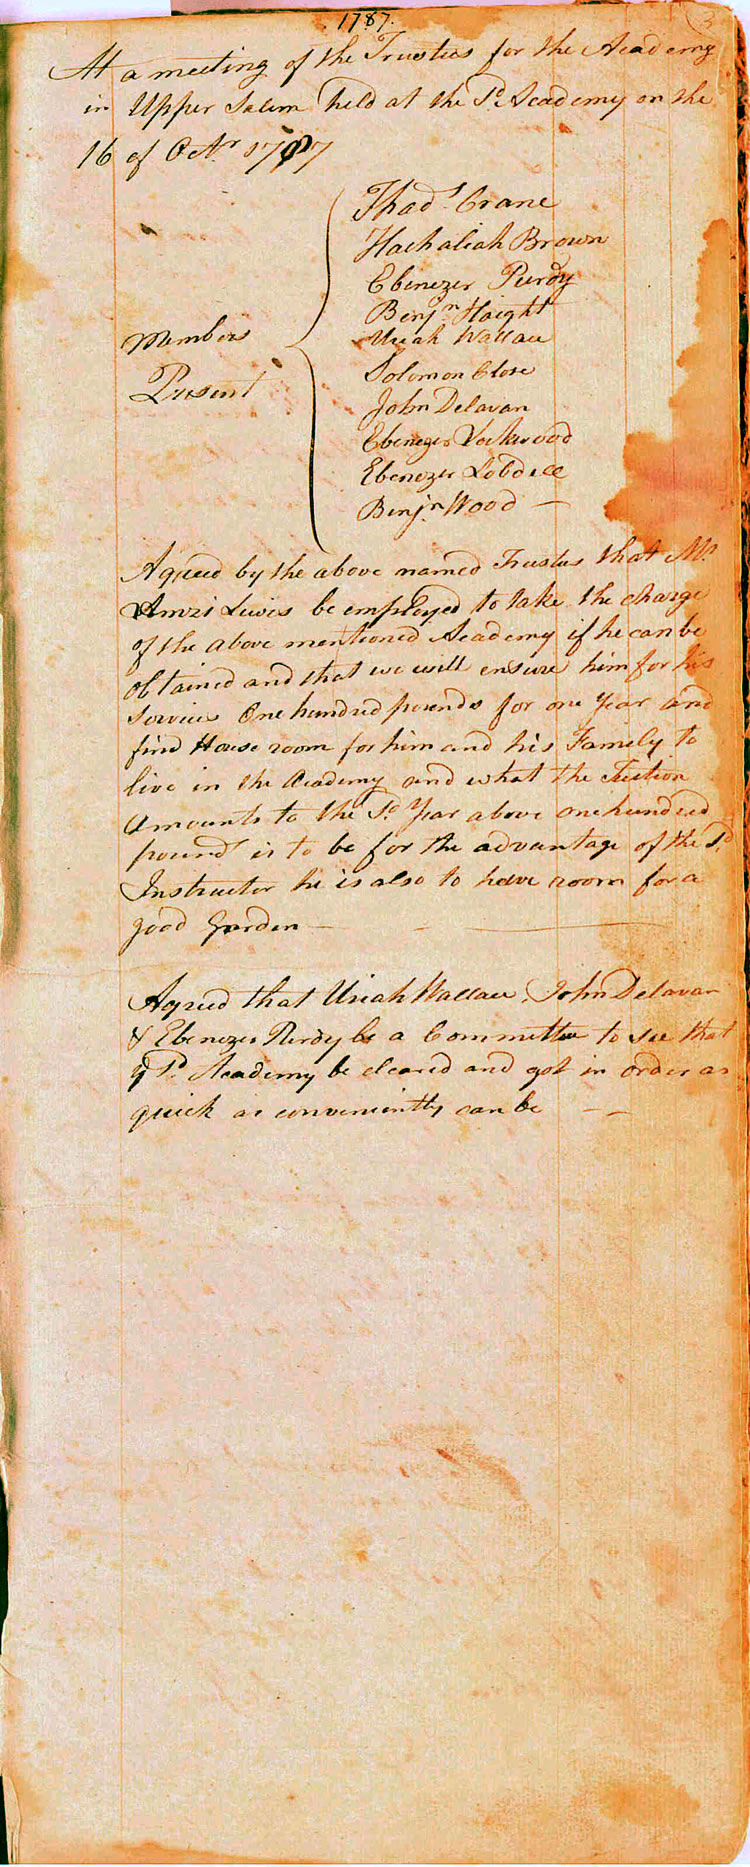 1787.
3
At a meeting of the Trustees for the Academy
in Upper Salem held at the Sd. Academy on the
16 of Octr. 1787
Members
Present
Thads. Crane
Hachaliah Brown
Ebenezer Purdy
Benjn. Haight
Uriah Wallace
Solomon Close
John Delavan
Ebenezer Lockwood
Ebenezer Lobdell
Benjn. Wood —
Agreed by the above named Trustees that Mr.
Amzi Lewis be employed to take the charge
of the above mentioned Academy if he can be
obtained and that we will ensure him for his
Services One hundred pounds for one Year and
find House room for him and his Family to
live in the Academy and what the Tuition
amounts to the Sd. Year above one hundred
pounds is to be for the advantage of the Sd.
Instructor he is also to have room for a
good Garden —
Agreed that Uriah Wallace, John Delavan
& Ebenezer Purdy be a Committee to see that
ye Sd. Academy be cleared and got in order as
quick as conveniently can be — —